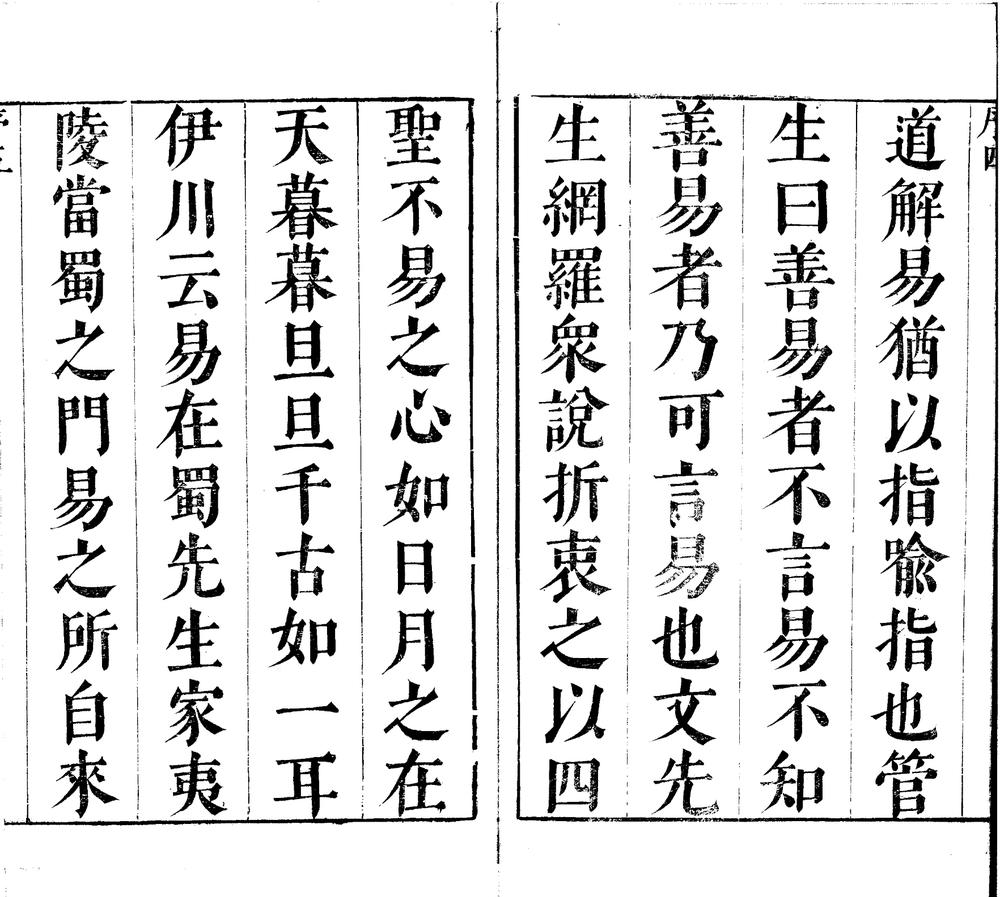 道解易猶以指喩指也管
生曰善易者不言易不知
善易者乃可言易也文先
生網羅衆說折衷之以四
聖不易之心如日月之在
天暮暮旦旦千古如一耳
伊川云易在蜀先生家夷
陵當蜀之門易之所自來